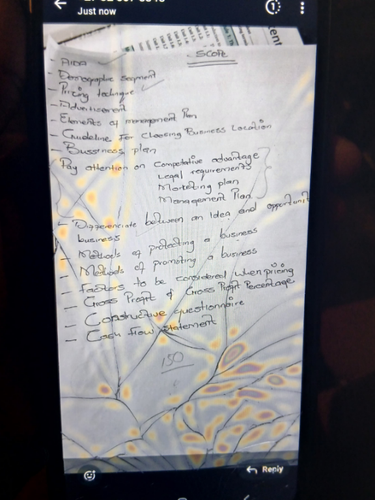 Just now
SCOPE
AIDA
- Demographic segment
- Pricing technique
- Advertisement
- Elements of management Plan
- Guideline For Choosing Business Location
- Bussiness plan
Pay attention on Competitive advantage
Legal requirements
Marketing plan
Management Plan
- Differenciate between an Idea and opportunit
business
- Methods of protecting a business
- Methods of promoting a business
- Factors to be considered when pricing
- Gross Profit & Gross Profit Percentage
- Constructive questionnaire
- Cash flow statement
150
Reply